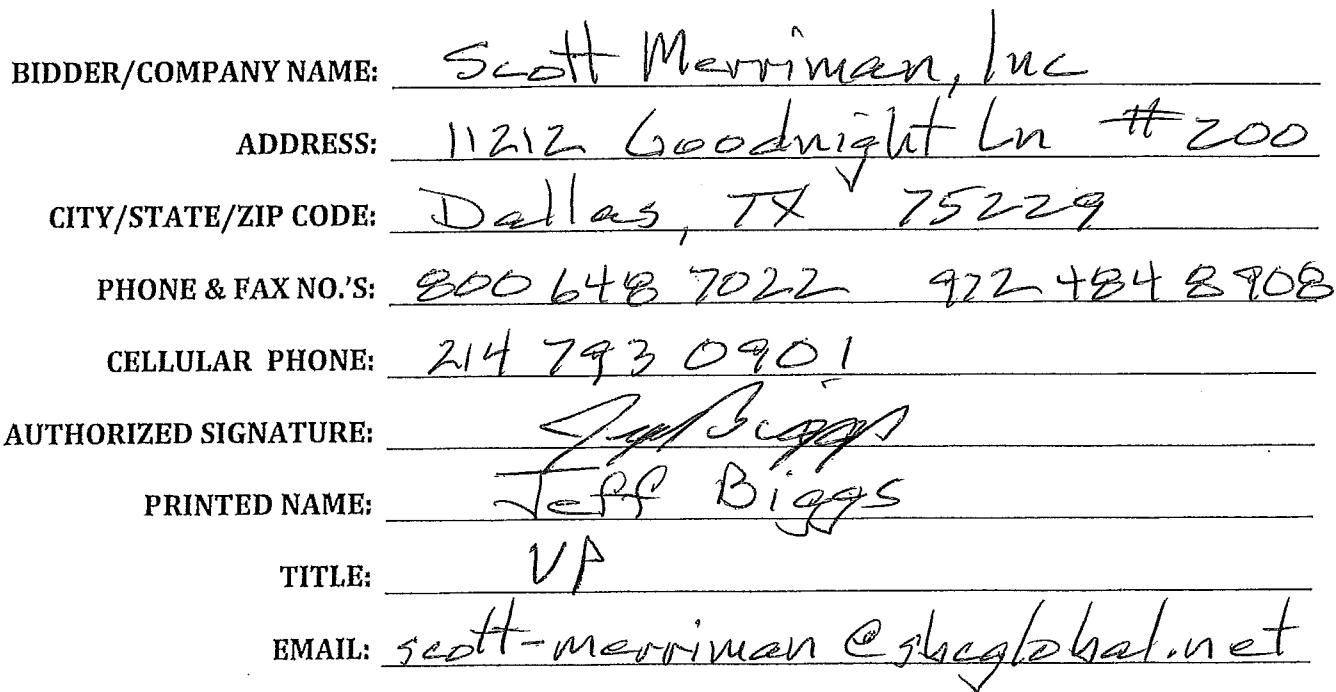 BIDDER/COMPANY NAME: Scott Merriman, Inc
ADDRESS: 11212 Goodnight Ln #200
CITY/STATE/ZIP CODE: Dallas, TX 75229
PHONE & FAX NO.'S: 800 648 7022 972 484 8908
CELLULAR PHONE: 214 793 0901
AUTHORIZED SIGNATURE: Jeff Biggs
PRINTED NAME: Jeff Biggs
TITLE: VP
EMAIL: scott-merriman@sbcglobal.net